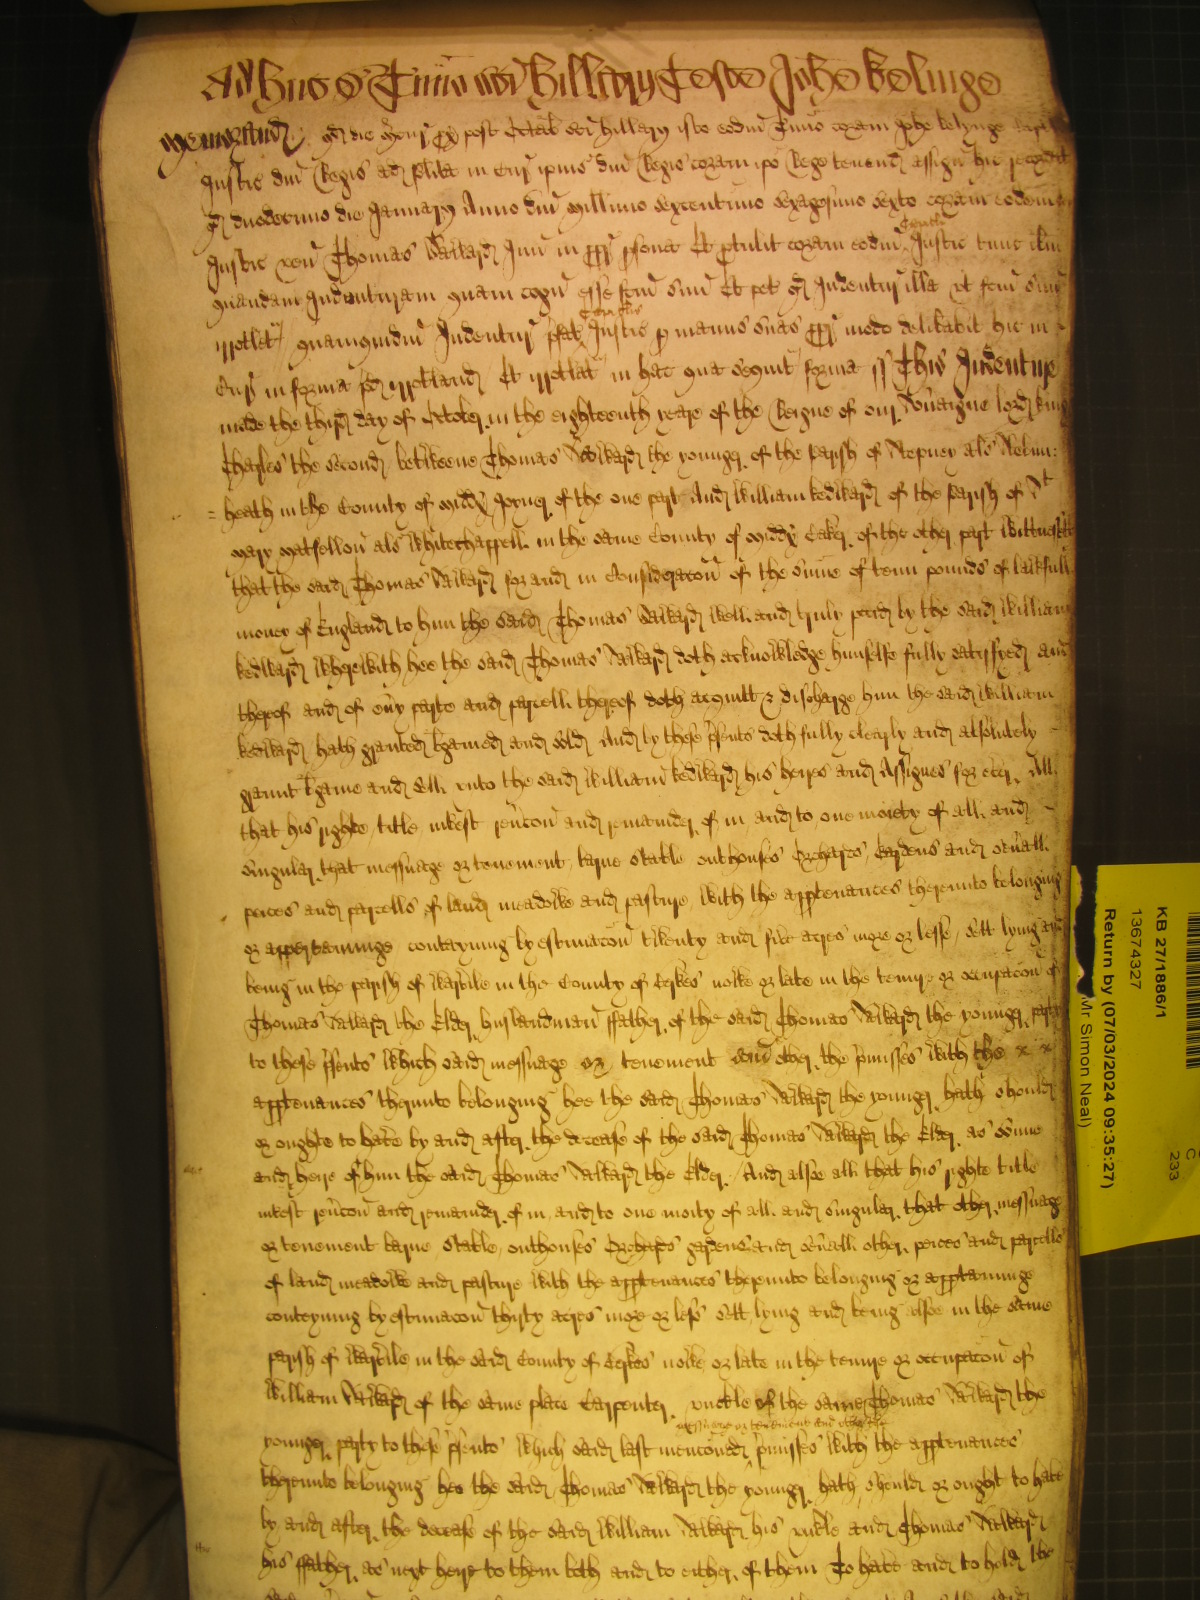 Adhuc de Termino sci Hillarij Teste Johe Kelinge
Memorand qd die post Octab sci Hillarij isto eodm Termino coram Johe Kelynge
Justic dni Regis ad plita in Cur ipius dni Regis coram ipo Rege tenend assign hic recordat
qd duodecimo die January Anno dni Millimo sexcentimo sexagesimo sexto coram eodem
Capitli
Justic ven Thomas Salward Jun in ppr psona Et ptulit coram eodm Justic tunc ibm
quandam Indenturam quam cogn esse fcm suu Et pet qd Indentur illa vt fcm suu
Capitlis
irrotlet quamquidm Indentur pfat Justic p manus suas ppr modo delibabit hic in
Cur in forma pd irrotland Et irrotlat in hac qua sequit forma ss This Indenture
made the third day of October in the eighteenth yeare of the Reigne of our Sovaigne lord King
Charles the second betweene Thomas Salward the younger of the parish of Stepney als Stebun:
= heath in the County of Middx Joyner of the one part And William kedward of the Parish of St
Mary Matfellon als Whitechappell in the same County of Middx Baker of the other part Wittnesseth
that the said Thomas Salward for and in Consideracon of the sume of tenn pounds of lawfull
money of England to him the said Thomas Salward well and truly paid by the said William
kedward wherewith hee the said Thomas Salward doth acknowledge himselfe fully satisfyed and
thereof and of evy parte and parcell thereof doth acquitt & discharge him the said William
kedward hath granted bgained and sold And by these psents doth fully clearly and absolutely
graunt bgaine and sell vnto the said William kedward his heires and Assignes for ever All
that his righte title intest revcon and remainder of in and to one moiety of all and
singular that messuage or tenement barne stable outhouses Orchards Gardens and sevall
peices and parcells of land meadowe and pasture with the appurtenances therevnto belonging
or appertaininge contayning by estimacon twenty and five acres more or lesse sett lying and
being in the parish of in the County of nowe or late in the tenure or occupacon of
Thomas Salward the Elder husbandman ffather of the said Thomas Salward the younger party
to these psents Which said messuage or tenement and other the pmisses with the x x
appurtenances therevnto belonging hee the said Thomas Salward the younger hath should
or oughte to have by and after the decease of the said Thomas Salward the Elder as sonne
and heire of him the said Thomas Salward the Elder And alsoe all that his righte title
intest revcon and remainder of in and to one moity of all and singular that other messuage
or tenement barne stable outhouses Orchards gardens and sevall other peices and parcells
of land meadowe and pasture with the appurtenances therevnto belonging or appertaininge
conteyning by estimacon thirty acres more or lesse sett lying and being alsoe in the same
parish of in the said County of nowe or late in the tenure or occupacon of
William Salward of the same place Carpenter vnckle of the same Thomas Salward the
messuage or tenement and other the
younger party to these psents Which said last menconed pmisses with the appurtenances
therevnto belonging hee the said Thomas Salward the younger hath should or ought to have
by and after the decease of the said William Salward his vnkle and Thomas Salward
his ffather as next heire to them both and to either of them To have and to hold the
KB 27/1886/1
13674327
Return by (07/03/2024 09:35:27)
Mr Simon Neal)
C
233